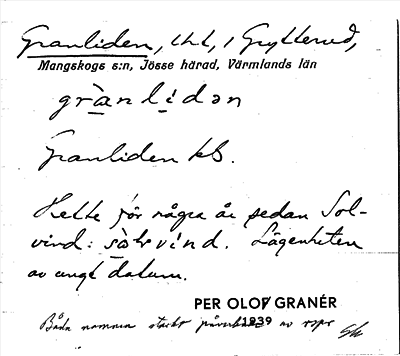 Granliden, lht, i Grytterud,
Mangskogs s:n, Jösse härad, Värmlands län
grànlídən
Granliden kb.
Hette för några år sedan Sol-
vind: sòlvínd. Lägenheten
av ungt datum.
PER OLOF GRANÉR
1939
Båda namnen starkt av